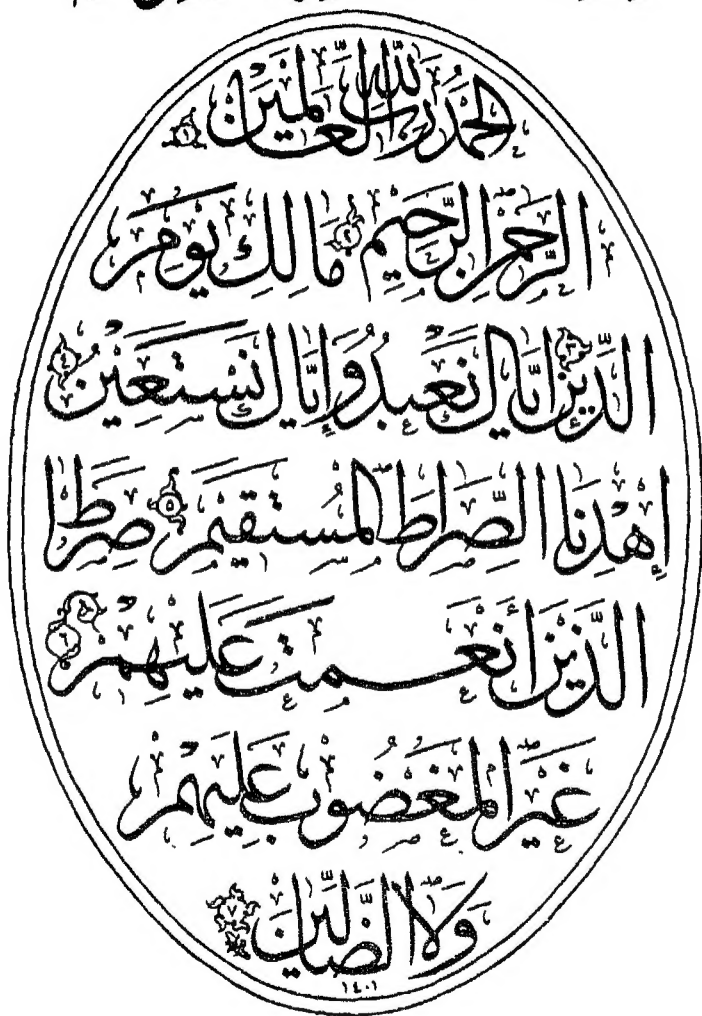 الْحَمْدُ لِلّٰهِ رَبِّ الْعَالَمِيْنَ ١
الرَّحْمٰنِ الرَّحِيْمِ ٢ مَالِكِ يَوْمِ
الدِّيْنِ ٣ إِيَّاكَ نَعْبُدُ وَإِيَّاكَ نَسْتَعِيْنُ ٤
إِهْدِنَا الصِّرَاطَ الْمُسْتَقِيْمَ ٥ صِرَاطَ
الَّذِيْنَ أَنْعَمْتَ عَلَيْهِمْ ٦
غَيْرِ الْمَغْضُوْبِ عَلَيْهِمْ
وَلَا الضَّالِّيْنَ ٧
١٤٠١